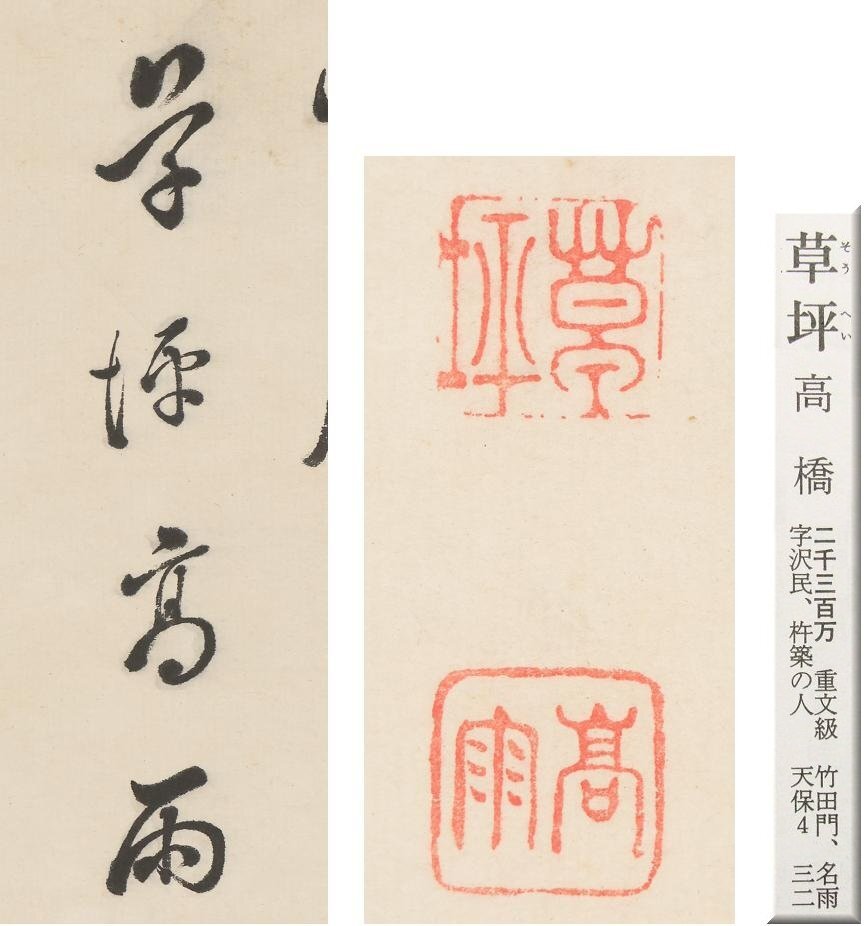 草坪高雨
草坪
高雨
草坪 高橋
そうへい
二千三百万 重文級 竹田門、名雨
字沢民、杵築の人 天保4 三二